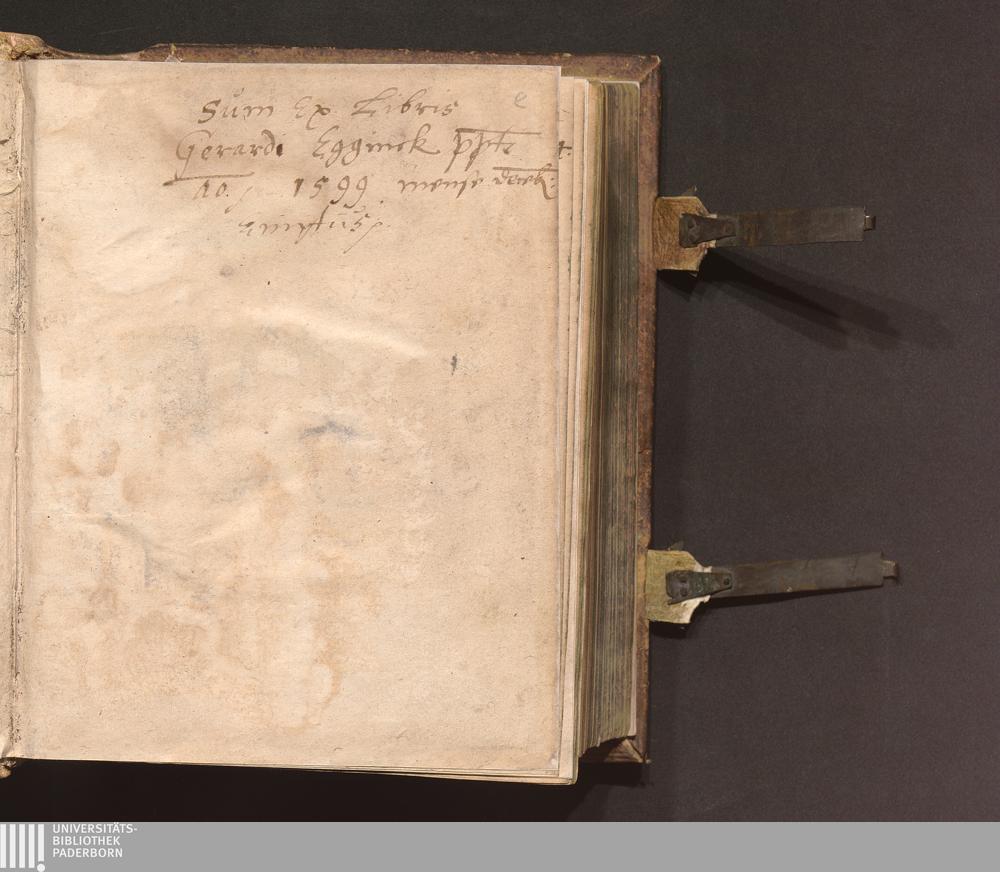 Sum Ex Libris
Gerardi Egginck
Ao. 1599 mense
Emptus
UNIVERSITÄTS-
BIBLIOTHEK
PADERBORN